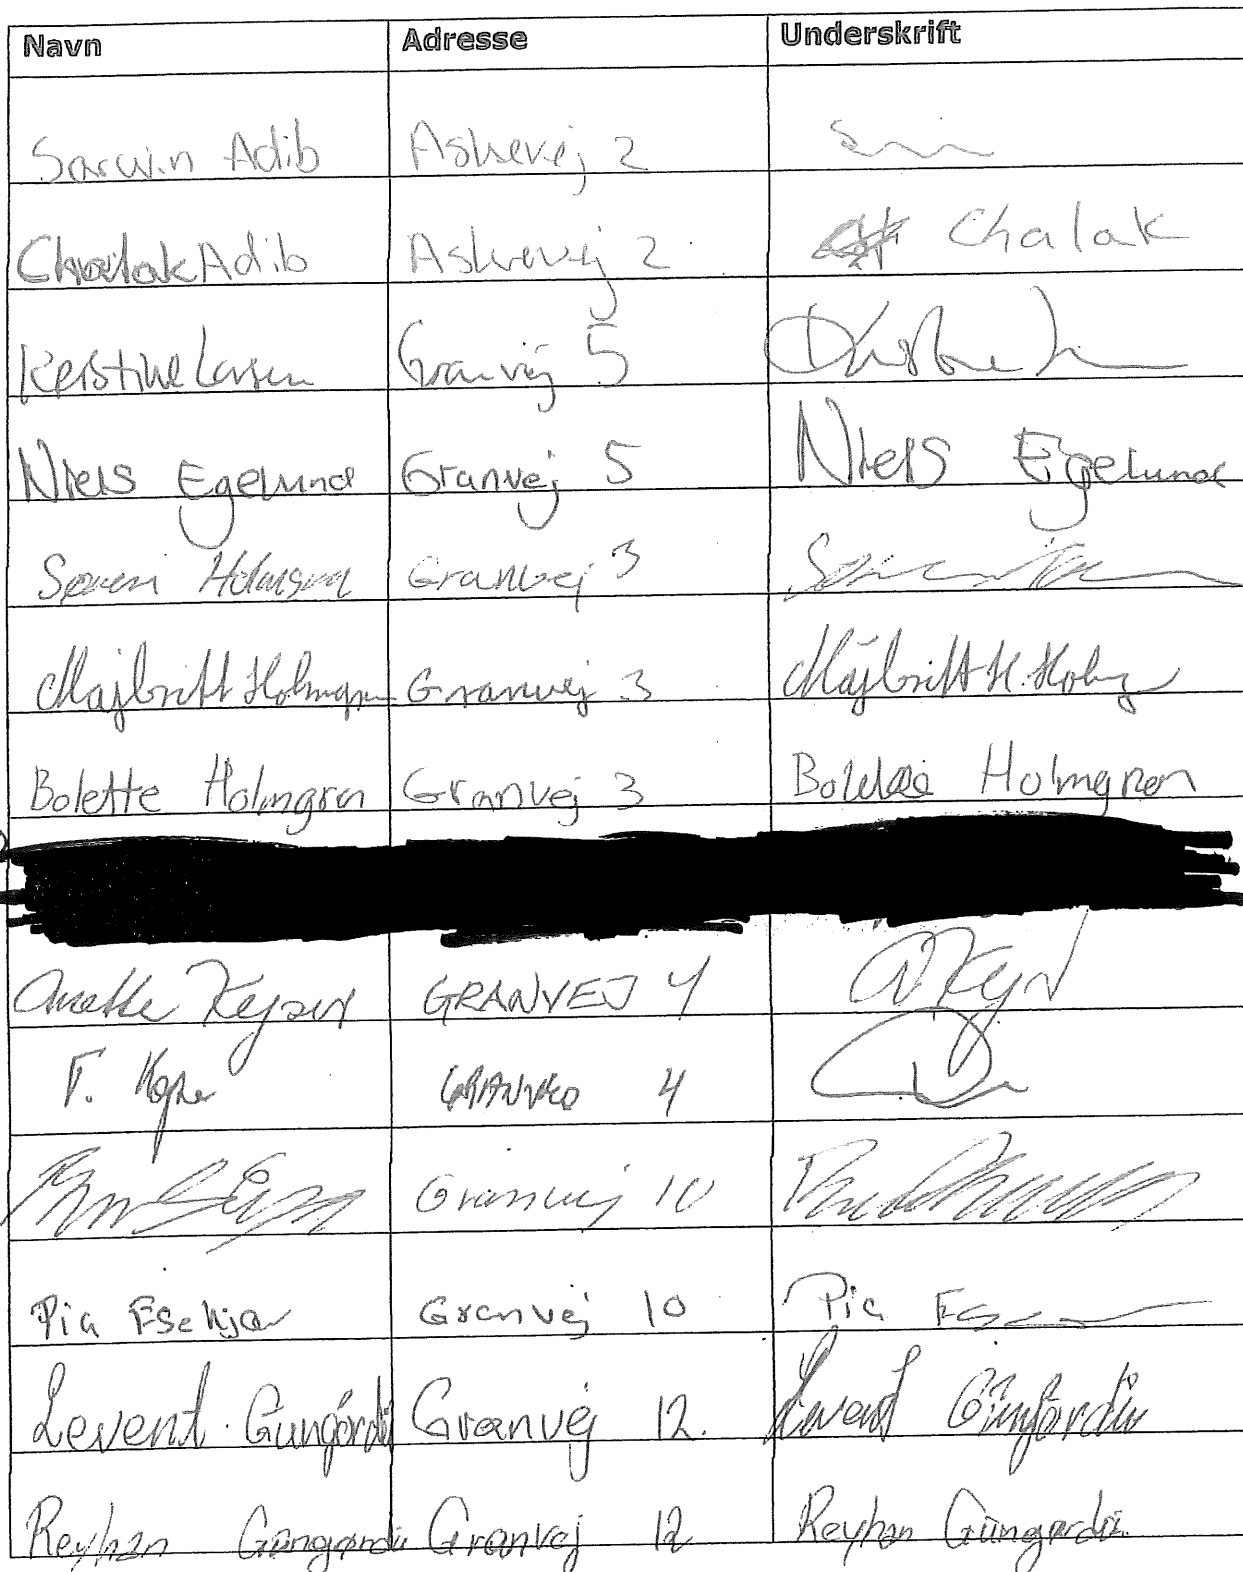 Navn Adresse Underskrift
Sarwin Adib Askevej 2
Chalak Adib Askevej 2 Chalak
Kerstine Larsen Granvej 5
Niels Egelund Granvej 5 Niels Egelund
Søren Holmgren Granvej 3
Majbritt Holmgren Granvej 3 Majbritt H. Holmg
Bolette Holmgren Granvej 3 Bolette Holmgren
Anette Kejser GRANVEJ 4
GRANVEJ 4
Granvej 10
Pia Granvej 10 Pia
Levent Güngördü Granvej 12. Levent Güngördü
Reyhan Güngørdü Granvej 12 Reyhan Güngørdü